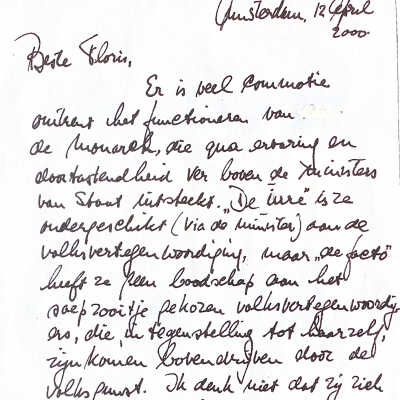 Amsterdam, 12 April
2000
Beste Floris,
Er is veel commotie
omtrent het functioneren van
de Monarch, die qua ervaring en
doortastendheid ver boven de Ministers
van Staat uitsteekt. „De iure" is ze
ondergeschikt (via de minister) aan de
volksvertegenwoordiging, maar „de facto"
heeft ze geen boodschap aan het
zoepzooitje gekozen volksvertegenwoordig
ers, die, in tegenstelling tot haarzelf,
zijn komen bovendrijven door de
volksgunst. Ik denk niet dat zij zich